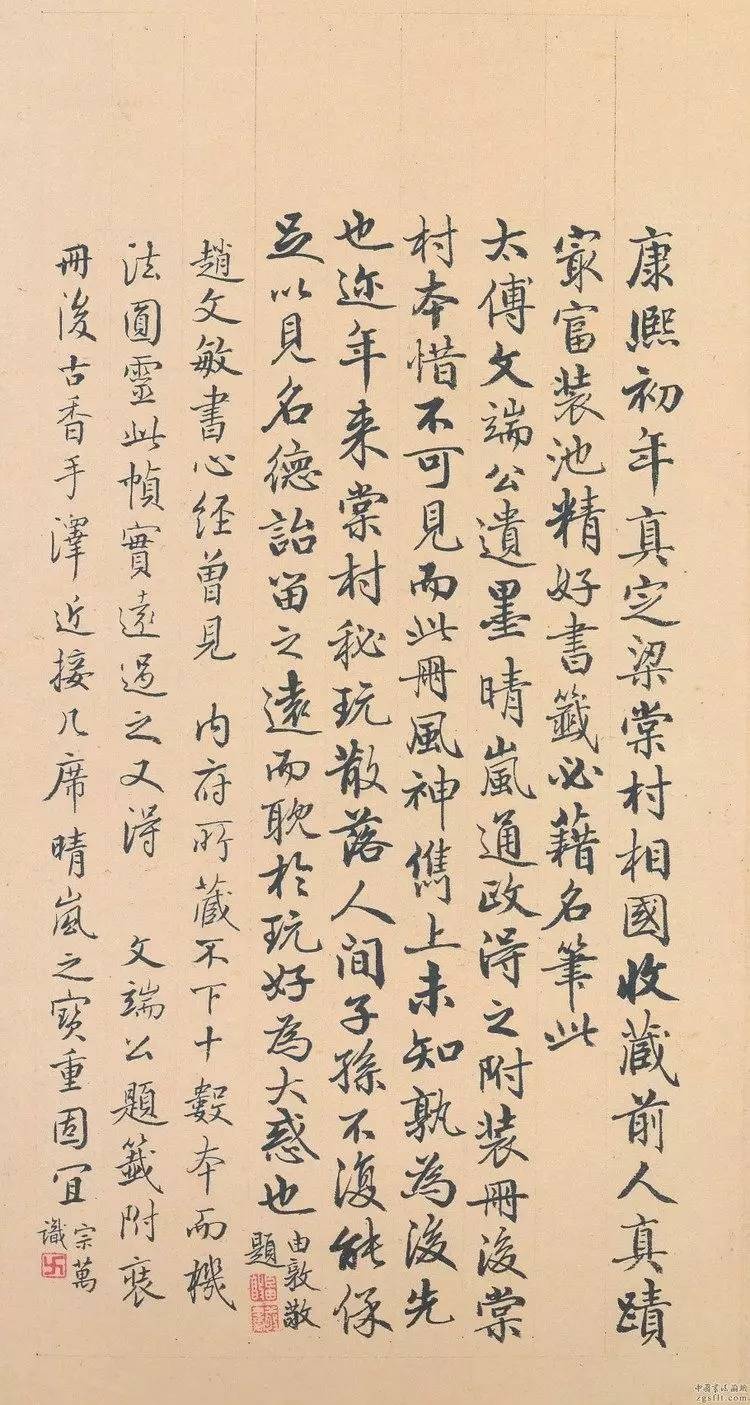 康熙初年真定梁棠村相國收藏前人真蹟
㝡富裝池精好書籤必藉名筆此
太傅文端公遺墨晴嵐通政得之附裝冊後棠
村本惜不可見而此冊風神儁上未知孰為後先
也迩年来棠村秘玩散落人间子孫不復能保
足以見名德詒留之遠而耽於玩好為大惑也
由敦敬
題
趙文敏書心经曽見 内府所藏不下十數本而機
法圓靈此幀實遠過之又得 文端公題籤附裝
冊後古香手澤近接几席晴嵐之寳重固宜
宗萬
識
中國書法論壇
zgsflt.com